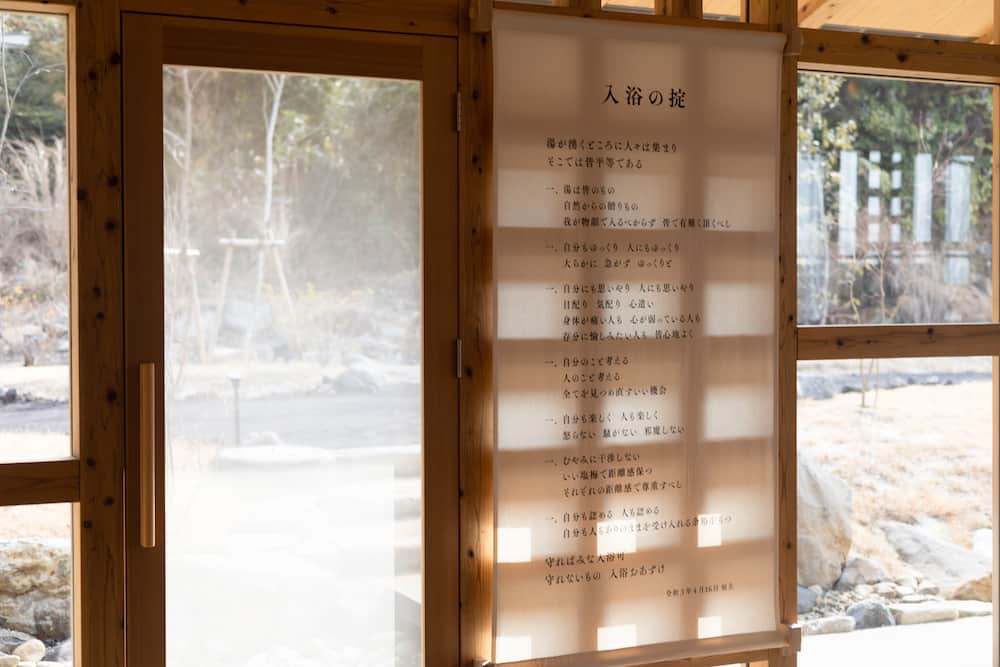 入浴の掟
湯が湧くところに人々は集まり
そこでは皆平等である
一、湯は皆のもの
自然からの贈りもの
我が物顔で入るべからず 皆で有難く頂くべし
一、自分もゆっくり 人にもゆっくり
大らかに 急がず ゆっくりと
一、自分にも思いやり 人にも思いやり
目配り 気配り 心遣い
身体が痛い人も 心が弱っている人も
存分に愉しみたい人も 皆心地よく
一、自分のこと考える
人のこと考える
全てを見つめ直すいい機会
一、自分も楽しく 人も楽しく
怒らない 騒がない 邪魔しない
一、むやみに干渉しない
いい塩梅で距離感保つ
それぞれの距離感で尊重すべし
一、自分も認める 人も認める
自分も人もありのままを受け入れる余裕をもつ
守ればみな入浴可
守れないもの 入浴おあずけ
令和3年4月16日